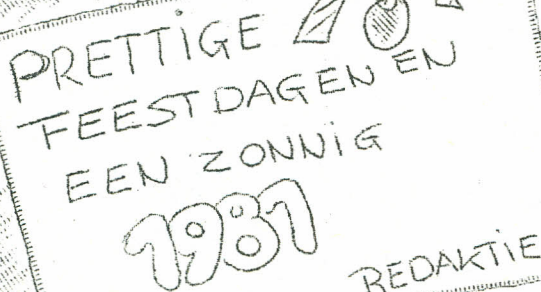 PRETTIGE
FEESTDAGEN EN
EEN ZONNIG
1981
REDAKTIE